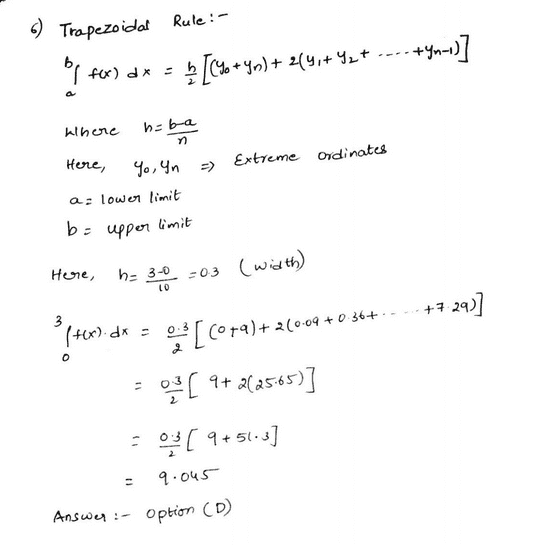 6) Trapezoidal Rule:-
b∫a f(x) dx = h/2 [(y0+yn) + 2(y1+y2+ ..... +yn-1)]
Where h = b-a/n
Here, y0, yn => Extreme ordinates
a = lower limit
b = upper limit
Here, h = 3-0/10 = 0.3 (width)
3∫0 f(x).dx = 0.3/2 [(0+9) + 2(0.09 + 0.36+ ..... +7.29)]
= 0.3/2 [9 + 2(25.65)]
= 0.3/2 [9 + 51.3]
= 9.045
Answer :- option (D)